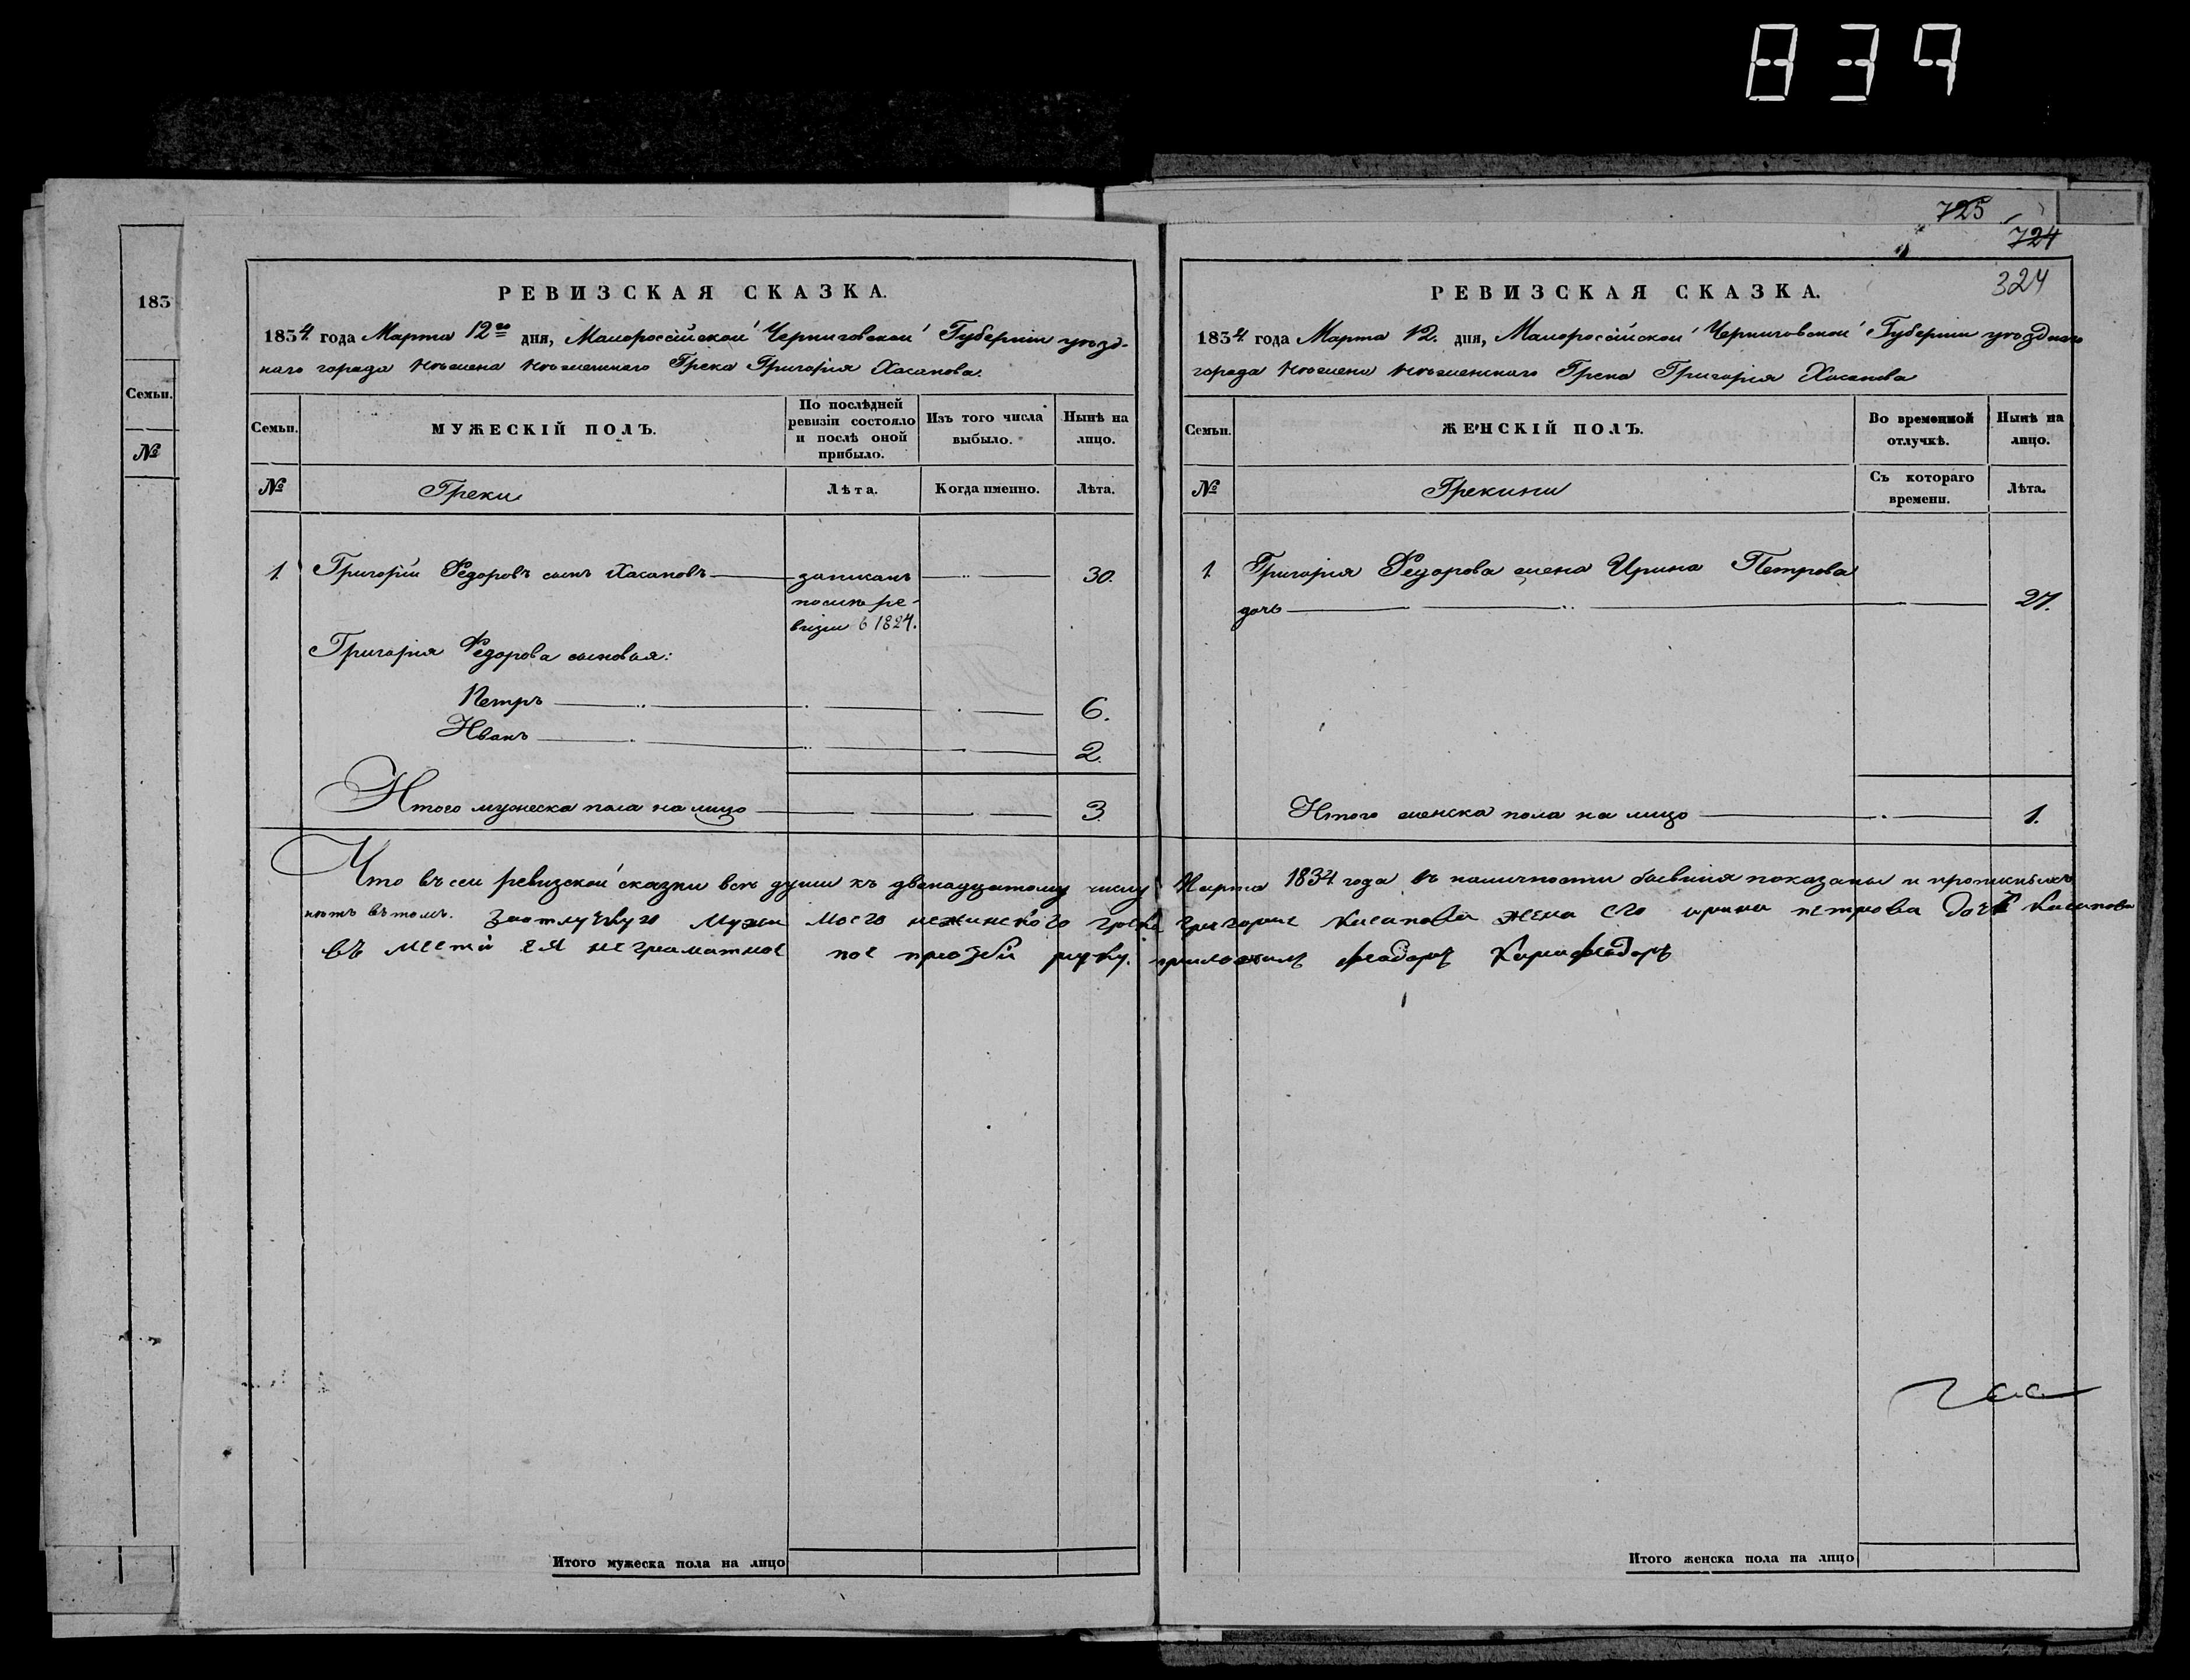 839
725
724
324
183
Семьи.
№
РЕВИЗСКАЯ СКАЗКА.
1834 года Марта 12го дня, Малороссійской Черниговской Губерніи уѣзд-
наго города Нѣжена Нѣженскаго Грека Григорія Хасапова.
Семьи.
МУЖЕСКІЙ ПОЛЪ.
По послѣдней ревизіи состояло и послѣ оной прибыло.
Изъ того числа выбыло.
Нынѣ на лицо.
№
Греки
Лѣта.
Когда именно.
Лѣта.
1. Григорій Федоровъ сынъ Хасаповъ записанъ 30.
послѣ ре-
визіи в 1824.
Григорія Федорова сыновья:
Петръ 6.
Иванъ 2.
Итого мужеска пола на лицо 3
РЕВИЗСКАЯ СКАЗКА.
1834 года Марта 12. дня, Малороссійской Черниговской Губерніи уѣзднаго
города Нѣжена Нѣженскаго Грека Григорія Хасапова
Семьи.
ЖЕНСКІЙ ПОЛЪ.
Во временной отлучкѣ.
Нынѣ на лицо.
№
Грекини
Съ котораго времени.
Лѣта.
1. Григорія Федорова жена Ирина Петрова
дочь 27.
Итого женска пола на лицо 1.
Что въ сей ревизской сказки всѣ души къ двенадцатому числу Марта 1834 года въ наличности бывшія показаны и прописныхъ
нѣтъ въ томъ. заотлучкую мужа моего нежинского грека григорие Касапова жена его ирина петрова дочъ Касапова
въ место ея неграматное пое прозби руку приложилъ феадоръ
Итого мужеска пола на лицо
Итого женска пола на лицо